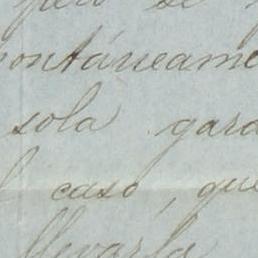 pero se
ontáneame
sola gara
caso, que
llevarla